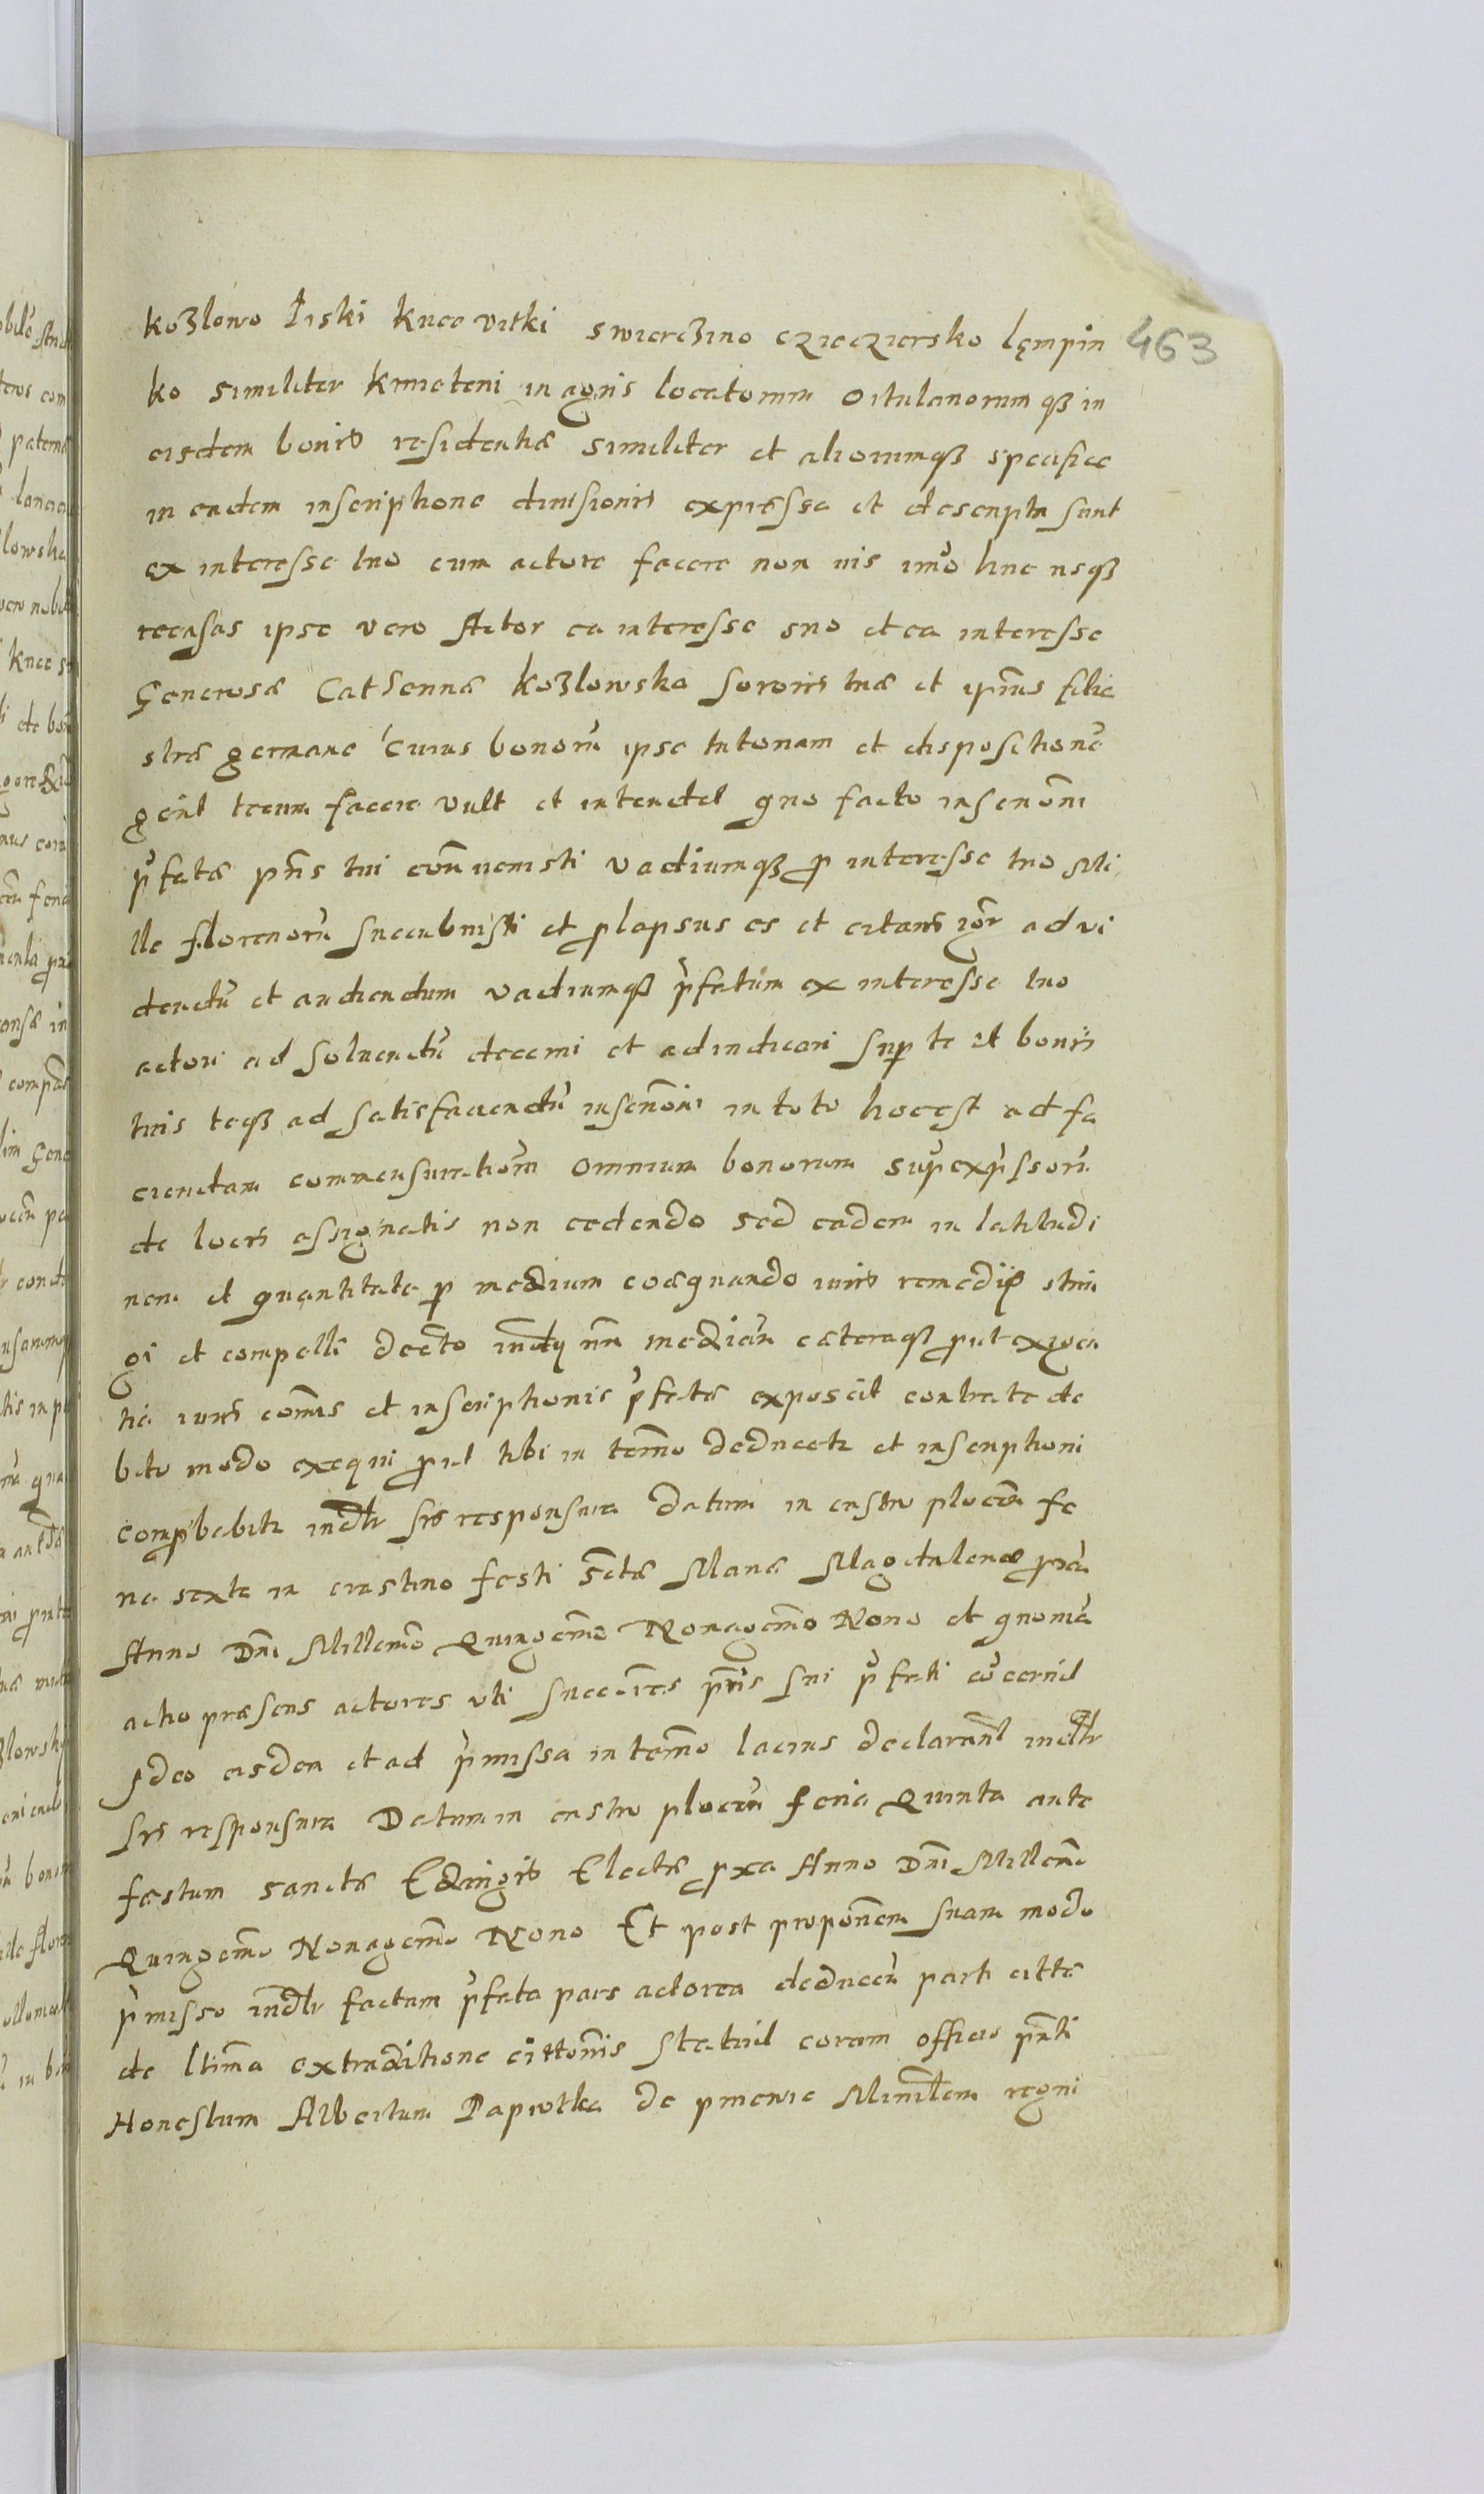 463
kozlowo Łiski knee vitki swierczino czieciersko lęmpin
ko similiter kmieteni in agris locatorum oitulanorumqȝ in
eisdem bonis residentiæ similiter et aliorumqȝ specifice
in eadem inscriptione diuisionis expresse et descripta sunt
ex interesse tuo cum actore facere non uis imo huc usqȝ
recusas ipse vero Actor ea interesse suo et ea interesse
Generosæ Catherinæ kozlowska sororis tuæ et ipius filia
stræ germanæ Cuius bonorū ipse tutoriam et dispositionē
gerit tecum facere vult et intendet quo facto inscrōni
pfatæ pris tui conuenisti vadiumqȝ p interesse tuo Mi
lle florenorū succubuisti et plapsus es et citaris igr ad vi
dendū et audiendum vadiumqȝ pfatum ex interesse tuo
actori ad soluendū decerni et adiudicari sup te et bonis
tuis teqȝ ad satisfaciendū inscrōni in toto hoc est ad fa
ciendam commensuratiom omnium bonorum supexpssorū
de locis assignatis non cedendo sed eadem in latitudi
nem et quantitate p medium coæquando iuris remedijs strin
gi et compelli decto indq nn median cæteraqȝ put exigen
tia iuris comis et inscriptionis pfatæ exposcit contra te de
bito modo exequi put tibi in termo deducetr et inscriptioni
compbabitr indlr sis responsura datum in castro plocen fe
ria sexta in crastino festi Sctæ Mariæ Magdalenæ pxa
Anno Dni Millemo Quingemo Nonagemo Nono et quoniā
actio præsens actores uti succres pris sui pfati cōcernit
Ideo eisdem et ad pmissa in termo lacius declarant indlr
sis responsura Datum in castro plocen feria Quinta ante
festum sanctæ Edwigis Electæ pxa Anno Dni Millemo
Quingemo Nonagemo Nono Et post proponem suam modo
pmisso indlr factam pfata pars actorea deducen parti cittæ
de ltima extraditione cittonis statuit coram officio pnti
Honestum Albertum Papiotka de pniewie Ministlem regni